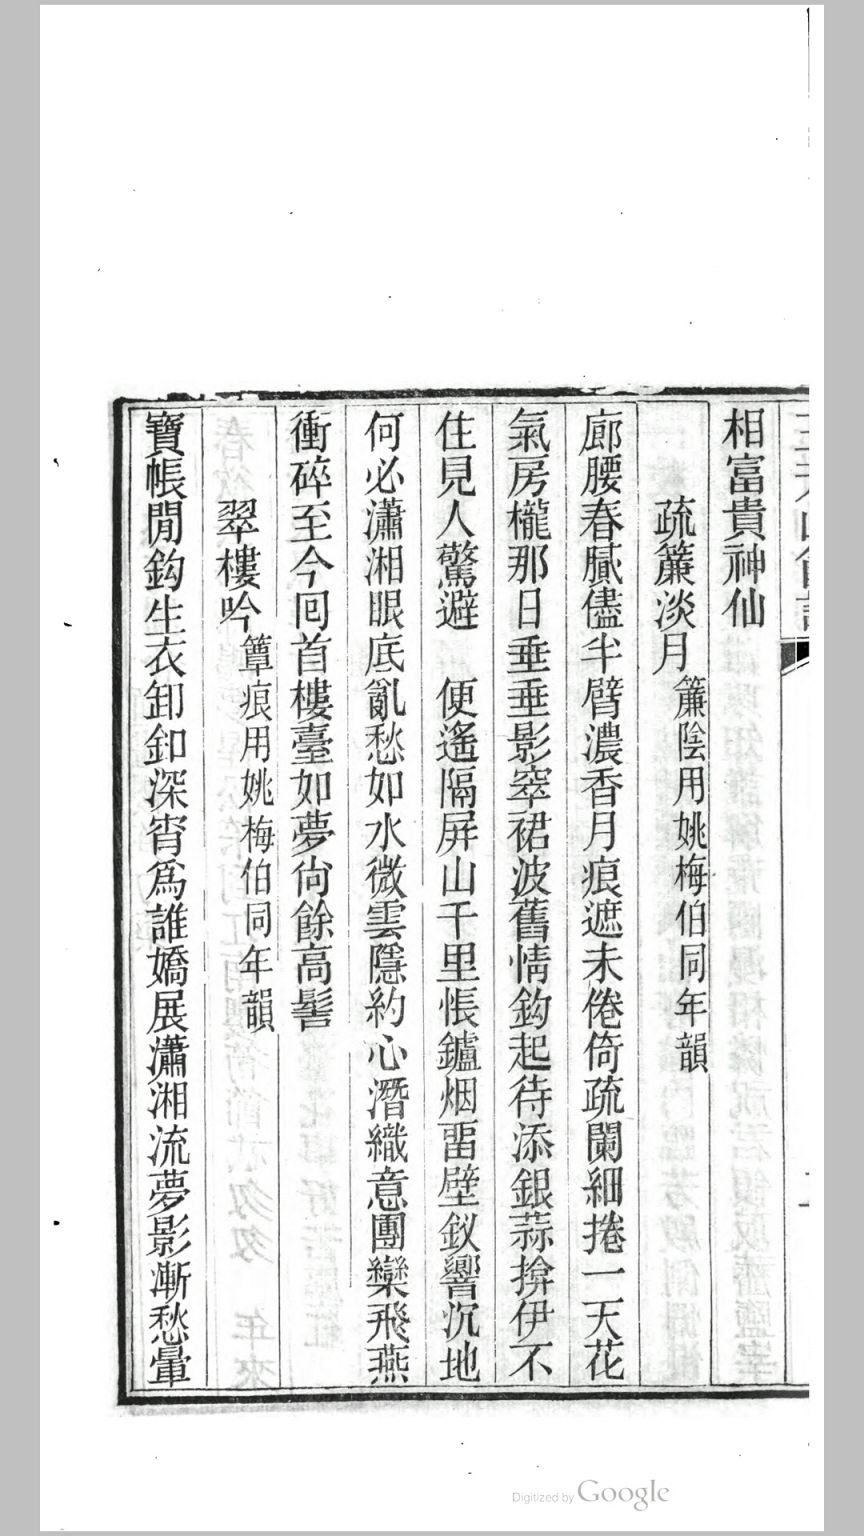 相富貴神仙
疏簾淡月 簾陰用姚梅伯同年韻
廊腰春膩儘半臂濃香月痕遮未倦倚疏闌細捲一天花
氣房櫳那日垂垂影窣裙波舊情鈎起待添銀蒜揜伊不
住見人驚避　便遙隔屏山千里悵鑪烟畱壁釵響沉地
何必瀟湘眼底亂愁如水微雲隱約心潛織意團欒飛燕
衝碎至今囘首樓臺如夢尙餘高髻
翠樓吟 簟痕用姚梅伯同年韻
寶帳閒鈎生衣卸釦深宵爲誰嬌展瀟湘流夢影漸愁暈
Digitized by Google